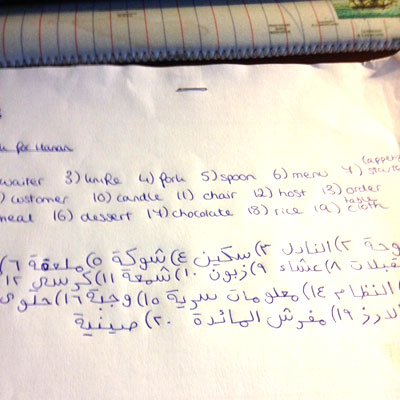 for Hanan
(appeti
waiter 3) knife 4) fork 5) spoon 6) menu 7) starte
) customer 10) candle 11) chair 12) host 13) order
meal 16) dessert 17) chocolate 18) rice 19) table cloth
وحة ٢) النادل ٣) سكين ٤) شوكة ٥) ملعقة ٦)
قبلات ٨) عشاء ٩) زبون ١٠) شمعة ١١) كرسي ١٢
النظام ١٤) معلومات سرية ١٥) وجبة ١٦) حلوى
الارز ١٩) مفرش المائدة ٢٠) صينية